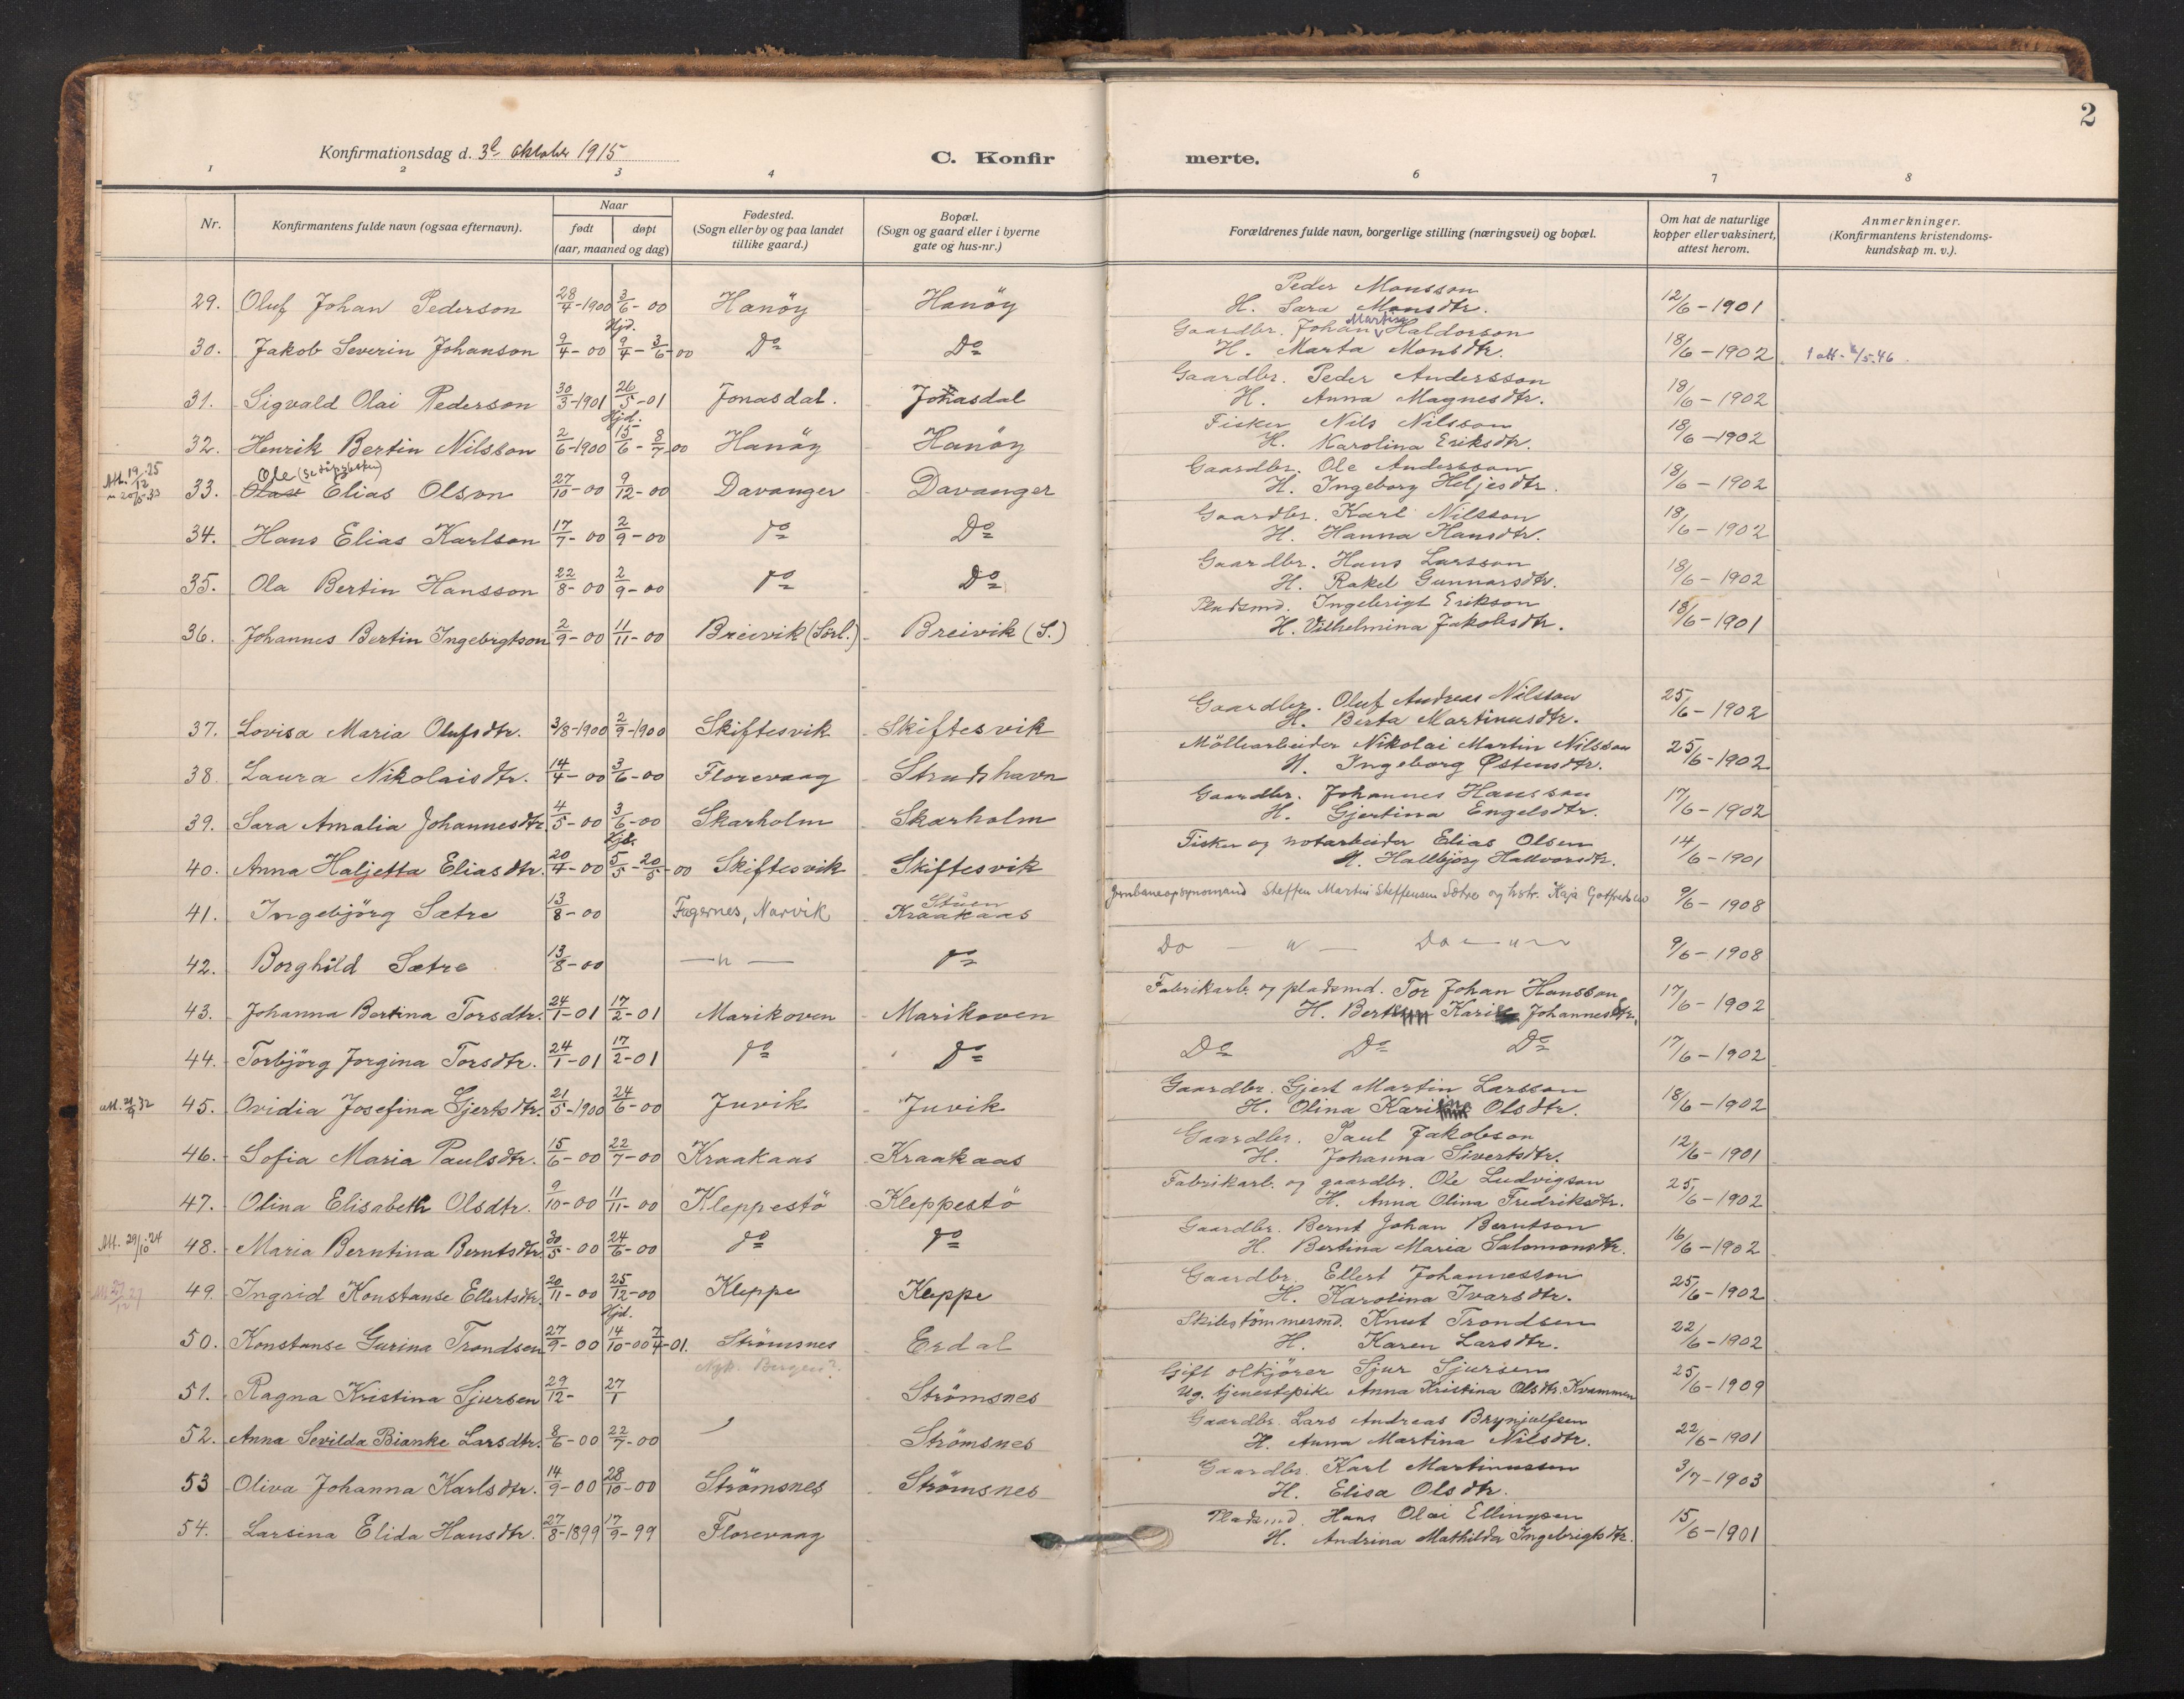 2
Konfirmationsdag d. 3d oktober 1915
C. Konfirmerte.
1 2 3 4 6 7 8
Nr. Konfirmantens fulde navn (ogsaa efternavn). Naar født døpt (aar, maaned og dag) Fødested. (Sogn eller by og paa landet tillike gaard.) Bopæl. (Sogn og gaard eller i byerne gate og hus-nr.) Forældrenes fulde navn, borgerlige stilling (næringsvei) og bopæl. Om hat de naturlige kopper eller vaksinert, attest herom. Anmerkninger. (Konfirmantens kristendoms-kundskap m. v.).
29. Oluf Johan Pederson 28/4-1900 3/6-00 Hanöy Hanöy Peder Monsson H. Sara Monsdtr. 12/6-1901
30. Jakob Severin Johanson 9/4-00 Hjd. 9/4-3/6-00 Do Do Gaardbr. Johan Martin Haldorson H. Marta Monsdtr. 18/6-1902
31. Sigvald Olai Pederson 30/3-1901 26/5-01 Jonasdal. Jonasdal Gaardbr. Peder Andersson H. Anna Magnesdtr. 18/6-1902
32. Henrik Bertin Nilsson 2/6-1900 Hjd. 15/6-8/7-00 Hanöy Hanöy Fisker Nils Nilsson H. Karolina Eriksdtr. 18/6-1902
Att. 19/12.25
33. Ole Elias Olson 27/10-00 9/12-00 Davanger Davanger Gaardbr. Ole Andersson H. Ingeborg Heljesdtr. 18/6-1902
34. Hans Elias Karlson 17/7-00 2/9-00 do Do Gaardbr. Karl Nilsson H. Hanna Hansdtr. 18/6-1902
35. Ola Bertin Hansson 22/8-00 2/9-00 do Do Gaardbr. Hans Larsson H. Rakel Gunnarsdtr. 18/6-1902
36. Johannes Bertin Ingebrgtson 2/9-00 11/11-00 Breivik (Sörl.) Breivik (S.) Pladsmd. Ingebrigt Erikson H. Vilhelmina Jakobsdtr. 18/6-1901
37. Lovisa Maria Olufsdtr. 3/8-1900 2/9-1900 Skiftesvik Skiftesvik Gaardbr. Oluf Andreas Nilsson H. Berta Martinusdtr. 25/6-1902
38. Laura Nikolaisdtr. 14/4-00 3/6-00 Florevaag Strudshavn Möllearbeider Nikolai Martin Nilsson H. Ingeborg Østensdtr. 25/6-1902
39. Sara Amalia Johannesdtr. 4/5-00 3/6-00 Skarholm Skarholm Gaardbr. Johannes Hansson H. Gjertina Engelsdtr. 17/6-1902
40. Anna Haljetta Eliasdtr. 20/4-00 Hjd. 5/5-20/5-00 Skiftesvik Skiftesvik Fisker og notarbeider Elias Olsen H. Hallbjörg Hallvorsdtr. 14/6-1901
41. Ingebjörg Sætre 13/8-00 Fagernes, Narvik Stuen Kraakaas Jernbaneopsynsmand Steffen Martin Steffensen Sætre og hstr. Kaja Gotfredsen 9/6-1908
42. Borghild Sætre 13/8-00 — " — do Do — " — Do — " — 9/6-1908
43. Johanna Bertina Torsdtr. 24/1-01 17/2-01 Marikoven Marikoven Fabrikarb. og pladsmd. Tor Johan Hansson H. Johannesdtr. 17/6-1902
44. Torbjörg Jorgina Torsdtr. 24/1-01 17/2-01 do Do Do Do Do 17/6-1902
45. Ovidia Josefina Gjertsdtr. 21/5-1900 24/6-00 Juvik Juvik Gaardbr. Gjert Martin Larsson H. Olina Olsdtr. 18/6-1902
46. Sofia Maria Paulsdtr. 15/6-00 22/7-00 Kraakaas Kraakaas Gaardbr. Paul Jakobson H. Johanna Sivertsdtr. 12/6-1901
47. Olina Elisabeth Olsdtr. 9/10-00 11/11-00 Kleppestö Kleppestö Fabrikarb. og gaardbr. Ole Ludvigson H. Anna Olina Fredriksdtr. 25/6-1902
Att. 29/10.24
48. Maria Berntina Berntsdtr. 30/5-00 24/6-00 do do Gaardbr. Bernt Johan Berntson H. Bertina Maria Salomonsdtr. 16/6-1902
49. Ingrid Konstanse Ellertsdtr. 20/11-00 25/12-00 Kleppe Kleppe Gaardbr. Ellert Johannesson H. Karolina Ivarsdtr. 25/6-1902
50. Konstanse Gurina Trondsen 27/9-00 Hjd. 14/10-00 7/4-01. Strömsnes Erdal Skibstömmermd. Knut Trondsen H. Karen Larsdtr. 22/6-1902
51. Ragna Kristina Sjursen 29/12- 27/1 Bergen? Strömsnes Gift olkjörer Sjur Sjursen Ug. tjenestepike Anna Kristina Olsdtr. Kvammen 25/6-1909
52. Anna Sevilda Bianke Larsdtr. 8/6-00 22/7-00 Strömsnes Gaardbr. Lars Andreas Brynjulfsen H. Anna Martina Nilsdtr. 22/6-1901
53 Oliva Johanna Karlsdtr. 14/9-00 28/10-00 Strömsnes Strömsnes Gaardbr. Karl Martinussen H. Elisa Olsdtr. 3/7-1903
54. Larsina Elida Hansdtr. 27/8-1899 17/9-99 Florevaag Pladsmd. Hans Olai Ellingsen H. Andrina Mathilda Ingebrigtsdtr. 15/6-1901